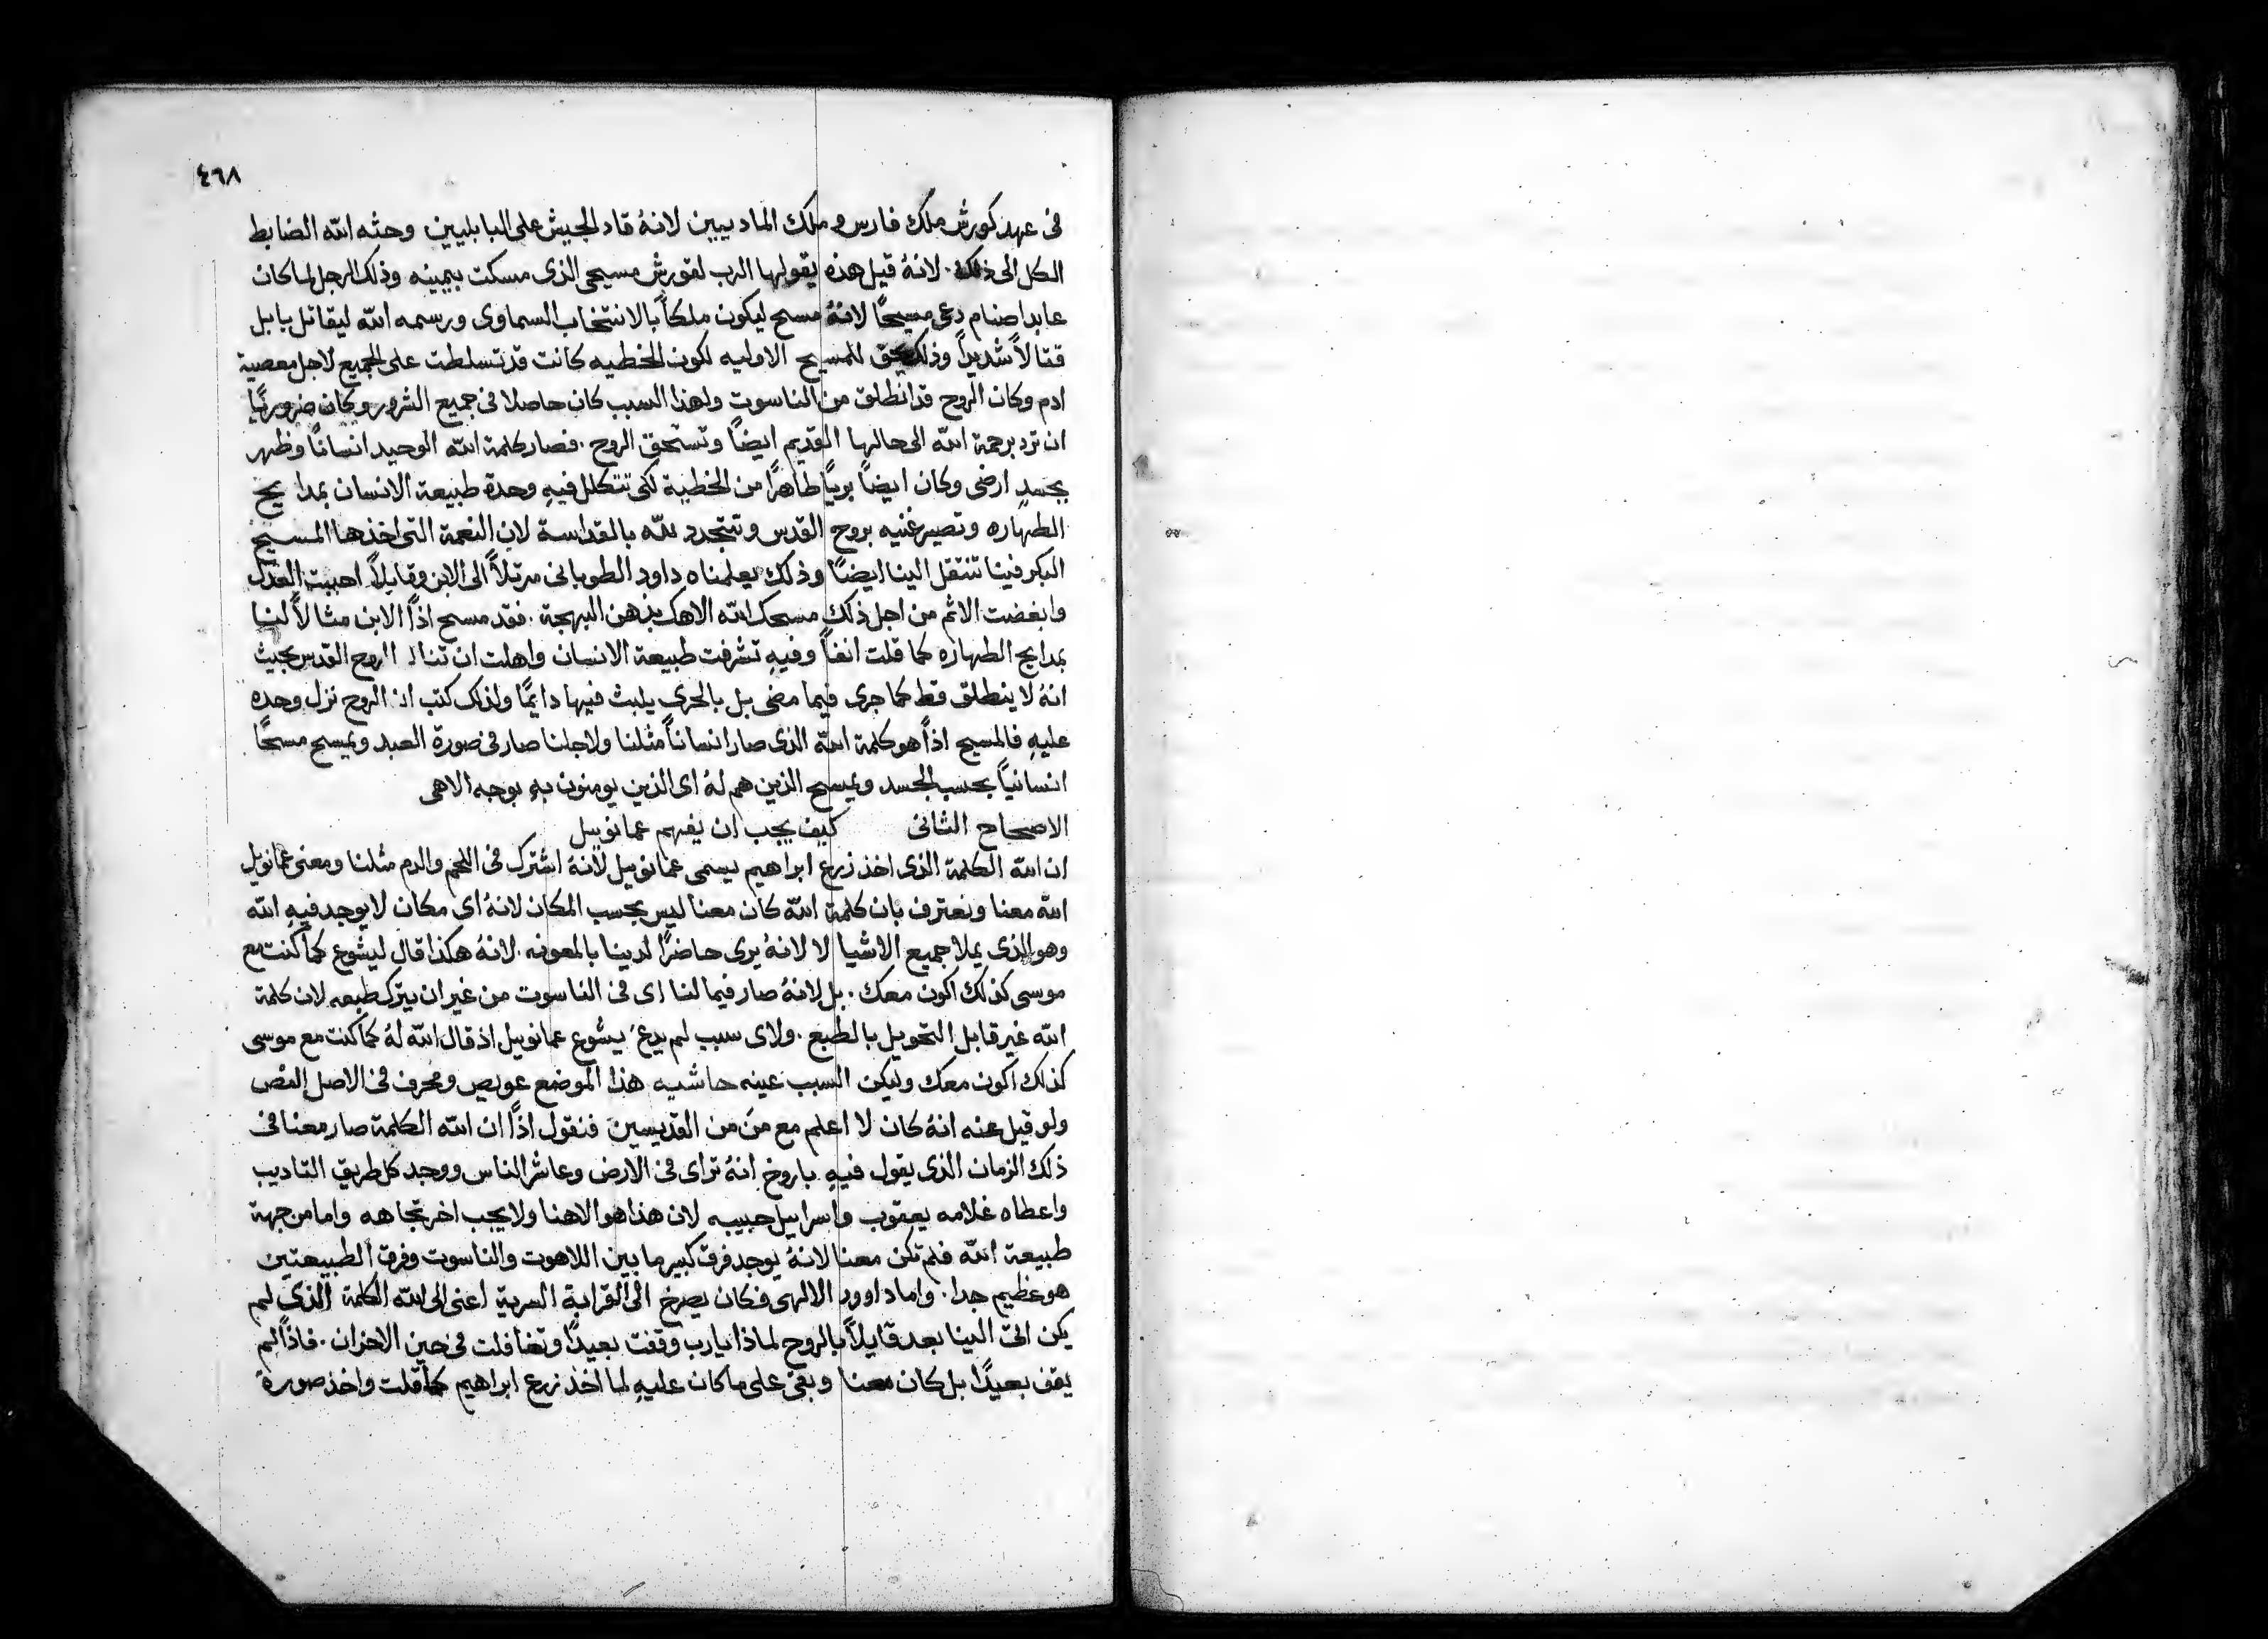 ٤٦٨
فى عهد كورش ملك فارس و ملك الماديين لانهُ قاد الجيش على البابليين وحثه الله الضابط
الكل الى ذلك. لانهُ قيل هذه يقولها الرب لقورش مسيحى الذى مسكت بيمينه وذلك الرجل لما كان
عابد اصنام دعى مسيحًا لانهُ مسح ليكون ملكاً بالانتخاب السماوى ورسمه الله ليقاتل بابل
قتالاً شديداً وذلك يحق للمسيح الاوليه لكون الخطيه كانت قد تسلطت على الجميع لاجل معصية
ادم وكان الروح قد انطلق من الناسوت ولهذا السبب كان حاصلا فى جميع الشرور وكان ضروريًا
ان ترد برحمة الله الى حالها القديم ايضًا وتستحق الروح. فصار كلمة الله الوحيد انسانًا وظهر
بجسدٍ ارضى وكان ايضاً بريًا طاهراً من الخطية لكى تتكلل فيهِ وحدة طبيعة الانسان بمدايح
الطهاره وتصير غنيه بروح القدس وتتجدد لله بالقداسة لان النعمة التى اخذها المسيح
البكر فينا تنتقل الينا ايضًا وذلك يعلمناه داود الطوبانى مرتلاً الى الابن وقايلاً احببت العدل
وابغضت الاثم من اجل ذلك مسحك الله الاهك بزهن البهجة. فقد مسح اذاً الابن مثالاً لنا
بمدايح الطهاره كما قلت انفاً وفيهِ تشرفت طبيعة الانسان واهلت ان تنال الروح القدس بحيث
انهُ لا ينطلق قط كما جرى فيما مضى بل بالحرى يلبث فيها دايمًا ولذلك كتب ان الروح نزل وحده
عليهِ فالمسيح اذاً هو كلمة الله الذى صار انساناً مثلنا ولاجلنا صار فى صورة العبد ويمسح مسحًا
انسانياً بحسب الجسد ويمسح الذين هم لهُ اى الذين يومنون بهِ بوجه الاهى
الاصحاح الثانى كيف يجب ان يفهم عمانوييل
ان الله الكلمة الذى اخذ زرع ابراهيم يسمى عمانوييل لانهُ اشترك فى اللحم والدم مثلنا ومعنى عمانويل
الله معنا ونعترف بان كلمة الله كان معنا ليس بحسب المكان لانهُ اى مكان لا يوجد فيهِ الله
وهو الذى يملا جميع الاشيا لا لانهُ يرى حاضرًا لدينا بالمعونه. لانهُ هكذا قال ليشوع كما كنت مع
موسى كذلك اكون معك. بل لانهُ صار فيما لنا اى فى الناسوت من غير ان يترك طبعه لان كلمة
الله غير قابل التحويل بالطبع. ولاى سبب لم يدع يشوع عمانوييل اذ قال الله لهُ كما كنت مع موسى
كذلك اكون معك وليكن السبب عينه حاشيه هذا الموضع عويص ومحرف فى الاصل النص
ولو قيل عنه انهُ كان لا اعلم مع من من القديسين فنقول اذًا ان الله الكلمة صار معنا فى
ذلك الزمان الذى يقول فيهِ باروخ انهُ تراى فى الارض وعاشر الناس ووجد كل طريق التاديب
واعطاه غلامه يعقوب واسراييل حبيبه لان هذا هو الاهنا ولا يجب اخر تجاهه واما من جهة
طبيعة الله فلم تكن معنا لانهُ يوجد فرق كبير ما بين اللاهوت والناسوت وفرق الطبيعتين
هو عظيم جدا. واما داوود الالهى فكان يصرخ الى القرابة السرية اعنى الى الله الكلمة الذى لم
يكن اتى الينا بعد قايلاً بالروح لماذا يا رب وقفت بعيدًا وتغافلت فى حين الاحزان. فاذاً لم
يقف بعيدًا بل كان معنا وبقى على ما كان عليهِ لما اخذ زرع ابراهيم كما قلت واخذ صورة